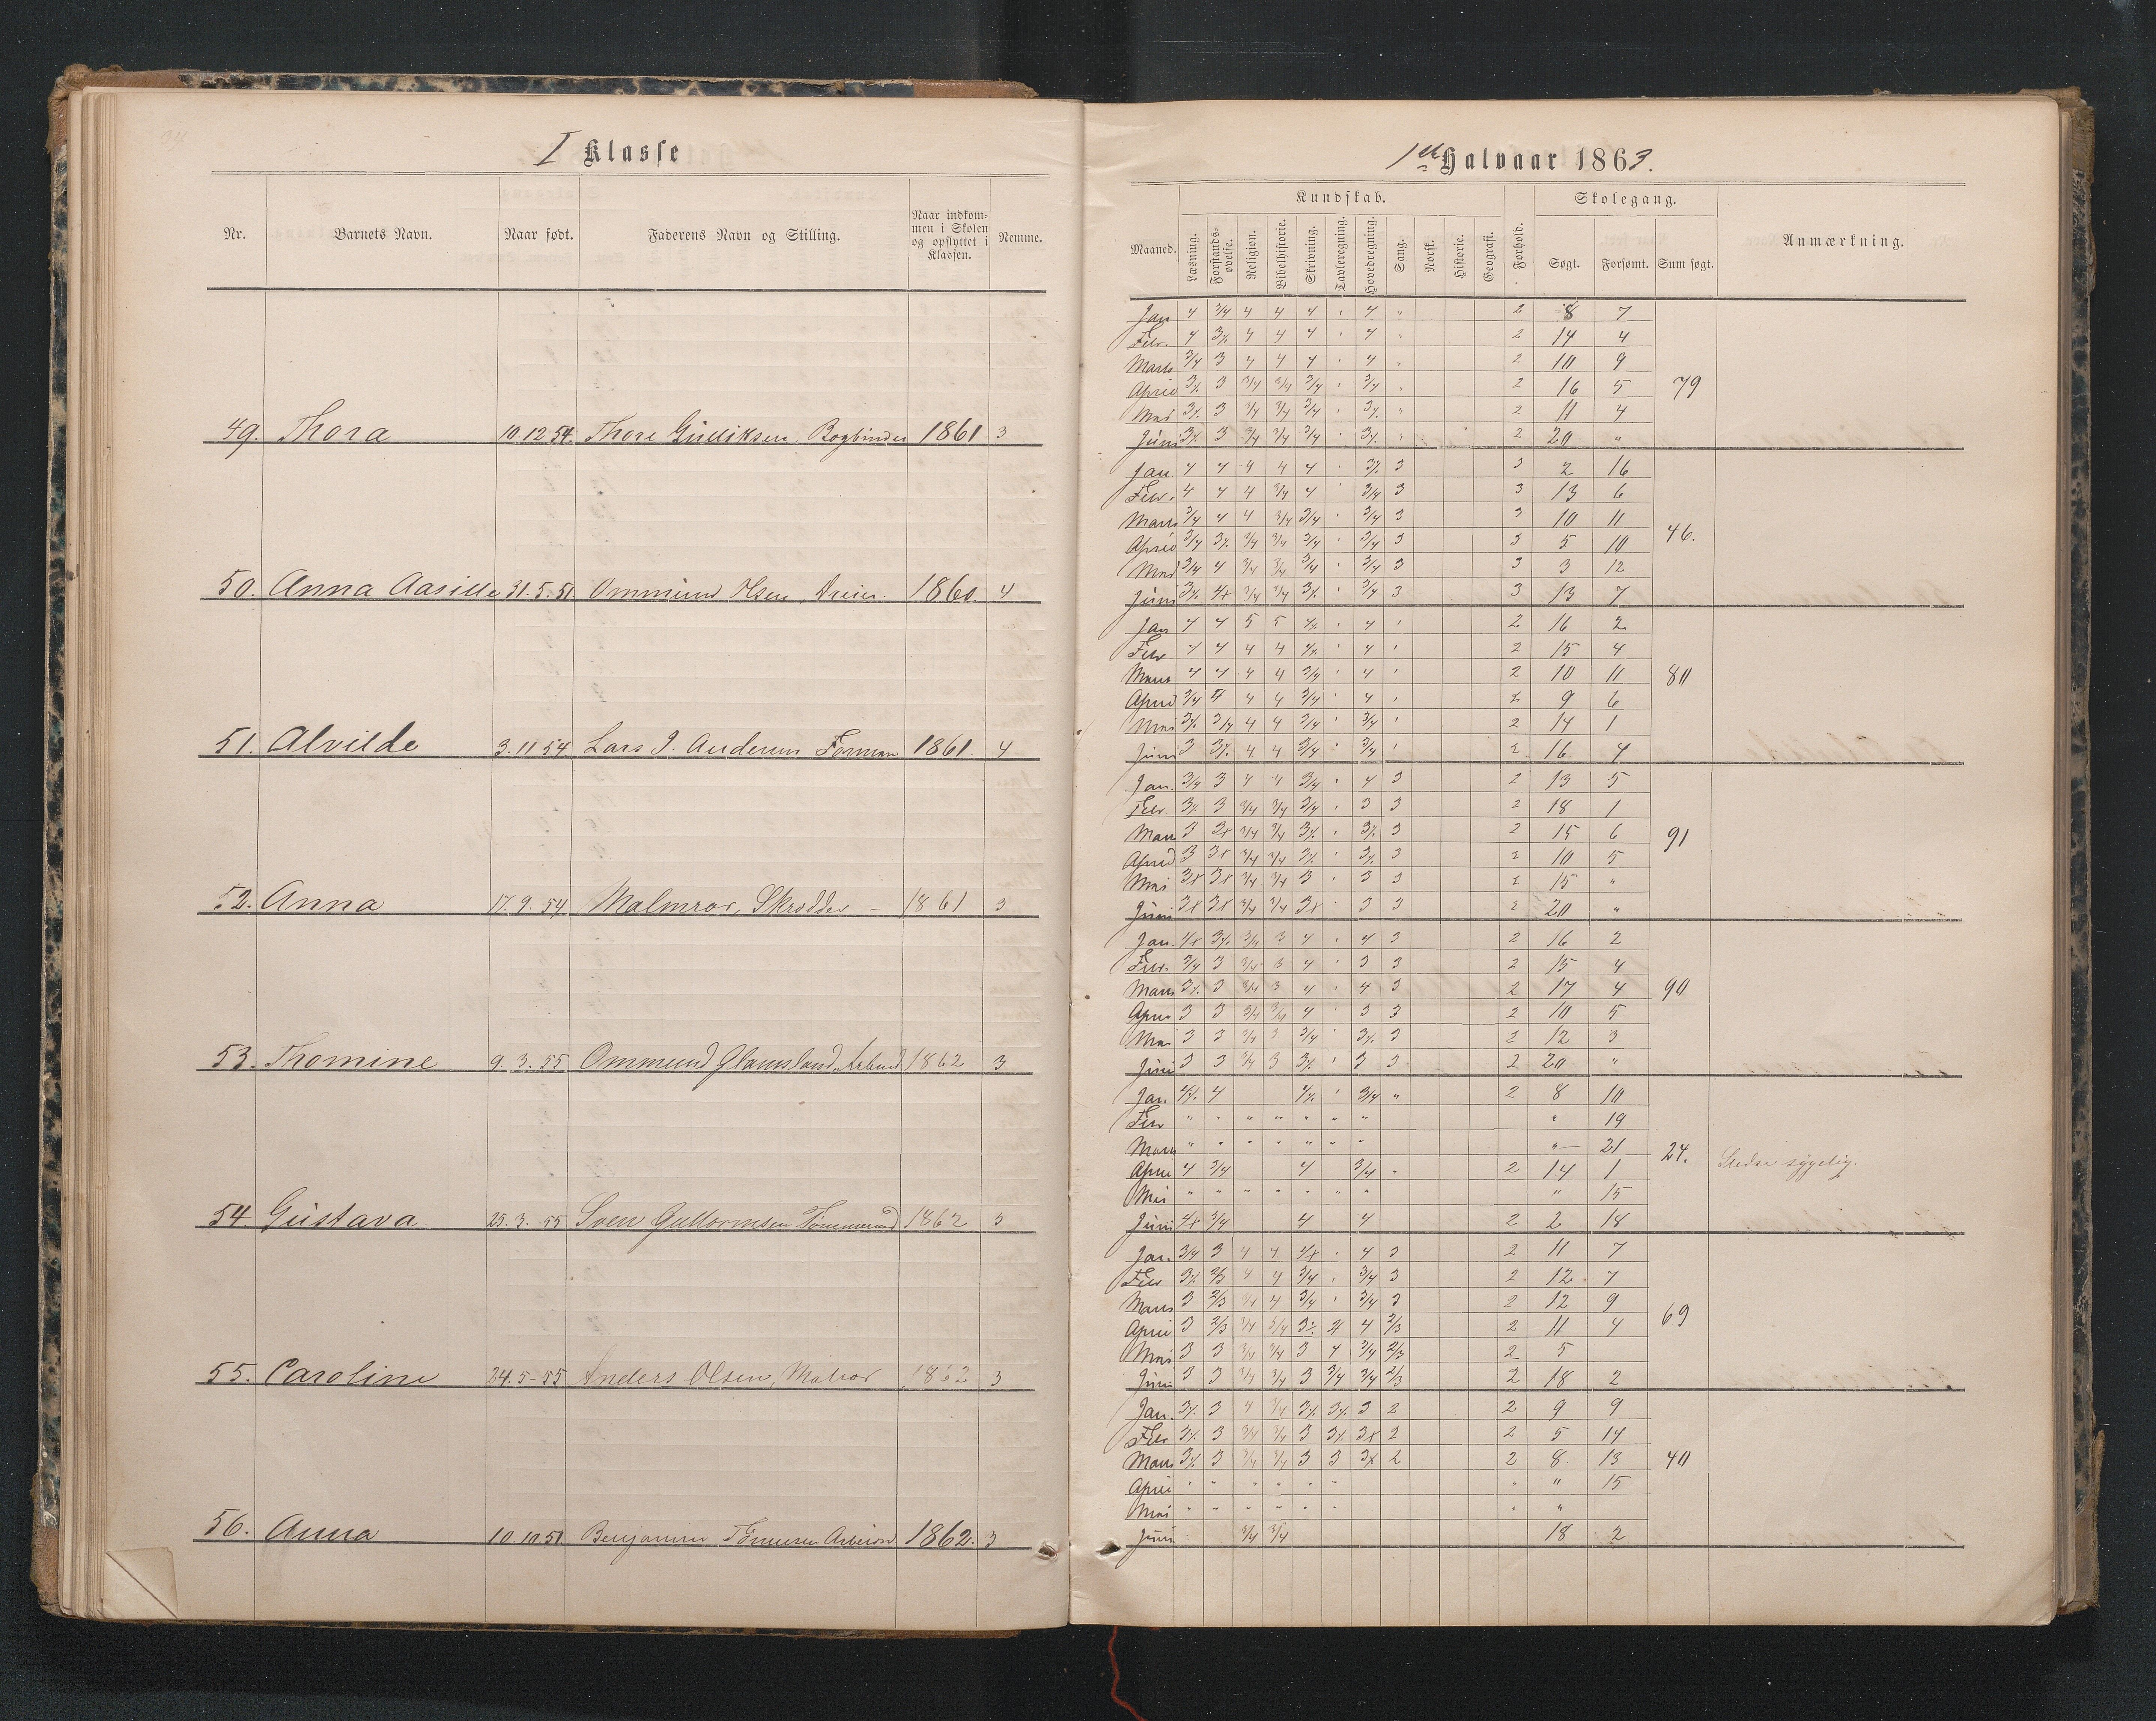 I Klasse
Nr. Barnets Navn. Naar født. Faderens Navn og Stilling. Naar indkommen i Skolen og opflyttet i Klassen. Nemme.
49. Thora 10.12 54. Thore Gudiksen, Bogbinder 1861 3
50. Anna Aasille 31.5.51 Ommund Olsen, Dreier. 1860. 4
51. Alvilde 3.11 54. Lars J. Andersen Formann 1861. 4
52. Anna 17.9 54 Malmros, Skrædder – 1861 3
53. Thomine 9.3.55 Ommund 1862 3
54. Gustava 25.3.55 Sven Guttormsen Tømmermd 1862 3
55. Caroline 24.5-55 Anders Olsen, Matros 1862 3
56. Anna 10.10.51 Benjamin Arbeider 1862. 3
1ste Halvaar 1863.
Kundskab. Skolegang.
Maaned. Læsning. Forstandsøvelse. Religion. Bibelhistorie. Skrivning. Tavleregning. Hovedregning. Sang. Norsk. Historie. Geografi. Forhold. Søgt. Forsømt. Sum søgt. Anmærkning.
Jan 4 3/4 4 4 4 4 2 8 7
Febr. 4 4 4 4 4 2 14 4
Marts 3/4 3 4 4 4 4 2 10 9
April 3 3/4 3/4 3/4 3/4 2 16 5 79
Mai 3 3/4 3/4 3/4 2 11 4
Juni 3 3/4 3/4 3/4 2 20 "
Jan. 4 4 4 4 4 3 3 2 16
Febr. 4 4 4 3/4 4 3/4 3 3 13 6
Marts 3/4 4 4 3/4 3/4 3/4 3 3 10 11
April 3/4 3/4 3/4 3/4 3/4 3 3 5 10 46.
Mai 3/4 4 3/4 3/4 3/4 3/4 3 3 3 12
Juni 3/4 3/4 3/4 3 3 13 7
Jan 4 4 5 5 4 2 16 2
Febr 4 4 4 4 4 2 15 4
Marts 4 4 4 4 3/4 4 2 10 11 80
April 3/4 4 4 4 3/4 4 2 9 6
Mai 3/4 4 4 3/4 3/4 2 14 1
Juni 3 4 4 3/4 3/4 2 16 4
Jan. 3/4 3 4 4 3/4 4 3 2 13 5
Febr. 3 3/4 3/4 3/4 3 3 2 18 1
Marts 3 3x 3/4 3/4 3 2 15 6 91
April 3 3x 3/4 3/4 3 2 10 5
Mai 3x 3x 3/4 3/4 3 3 3 2 15 "
Juni 3x 3x 3/4 3/4 3x 3 3 2 20 "
Jan. 4x 3/4 3 4 4 3 2 16 2
Febr. 3/4 3 3/4 3 4 3 3 2 15 4
Marts 3 3/4 3 4 4 3 2 17 4 90
April 3 3 3/4 3/4 4 3 3 2 10 5
Mai 3 3 3/4 3 3/4 3 2 12 3
Juni 3 3 3/4 3 3 3 2 20 "
Jan. 4 3/4 " 2 8 10
Febr " " " " " " " " 19
Marts " " " " " " " " 21 24. sygelig.
April 4 3/4 4 3/4 2 14 1
Mai " " " " " " " " 15
Juni 4x 3/4 4 4 2 2 18
Jan. 3/4 3 4 4 4x 4 3 2 11 7
Febr 2/3 4 4 3/4 3/4 3 2 12 7
Marts 3 2/3 3/4 4 3/4 3/4 3 2 12 9 69
April 3 2/3 3/4 3/4 4 4 2/3 2 11 4
Mai 3 3 3/4 3/4 3 4 3/4 2/3 2 5
Juni 3 3 3/4 3/4 3 3/4 3/4 2/3 2 18 2
Jan. 3 4 3/4 3 2 2 9 9
Febr 3 3/4 3/4 3 3x 2 2 5 14
Marts 3 3/4 3/4 3 3 3x 2 2 8 13 40
April " " " " " " " " 15
Mai " " " " " " " "
Juni 3/4 3/4 18 2